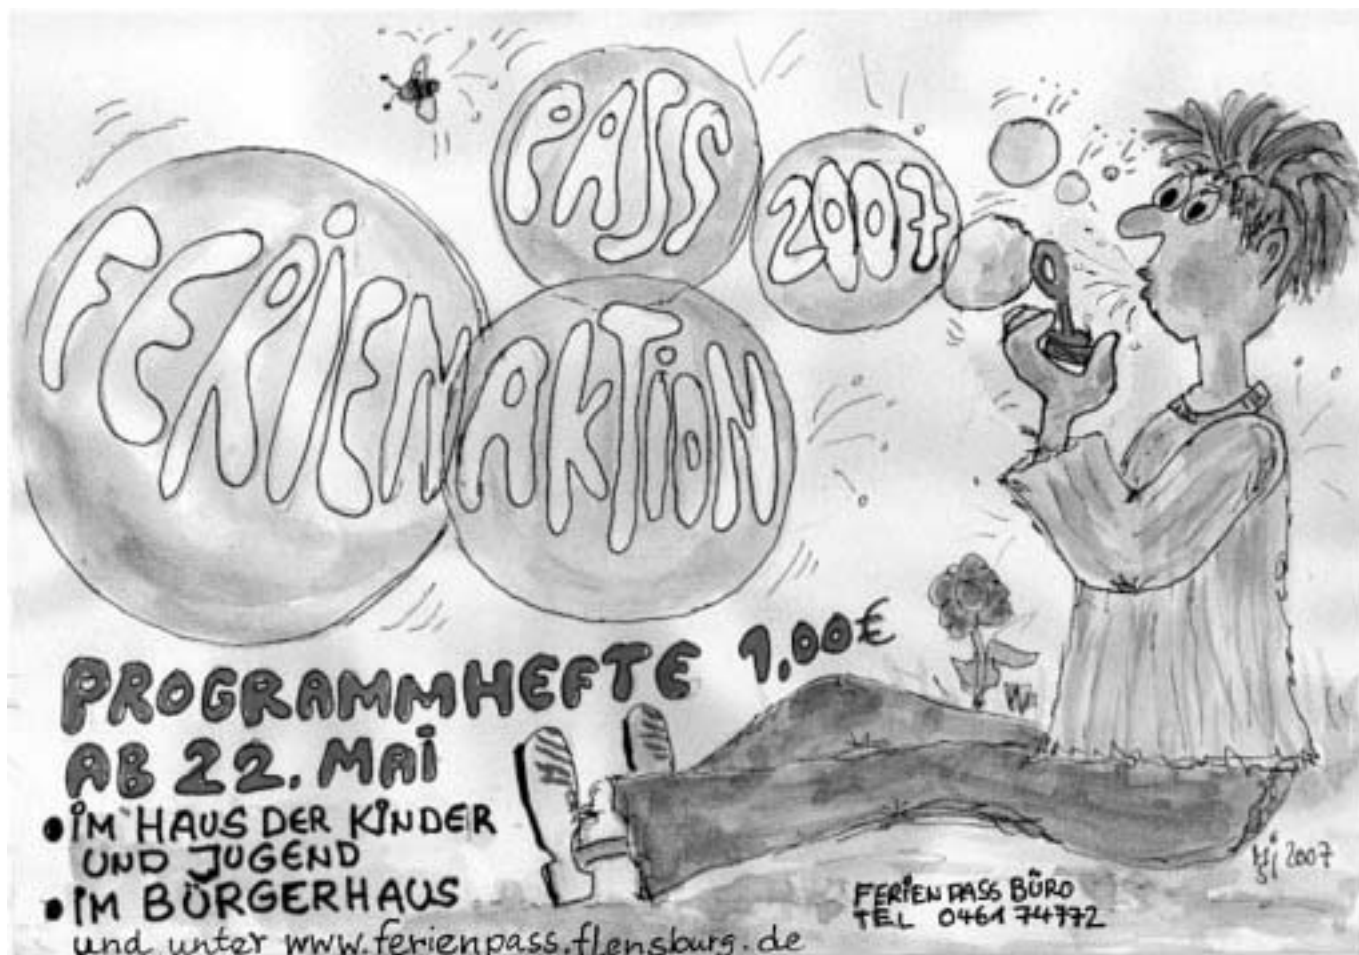 FERIEN
PASS
AKTION
2007
PROGRAMMHEFTE 1,00€
AB 22. MAI
• IM HAUS DER KINDER
UND JUGEND
• IM BÜRGERHAUS
und unter www.ferienpass.flensburg.de
FERIENPASS BÜRO
TEL 0461 74772
2007